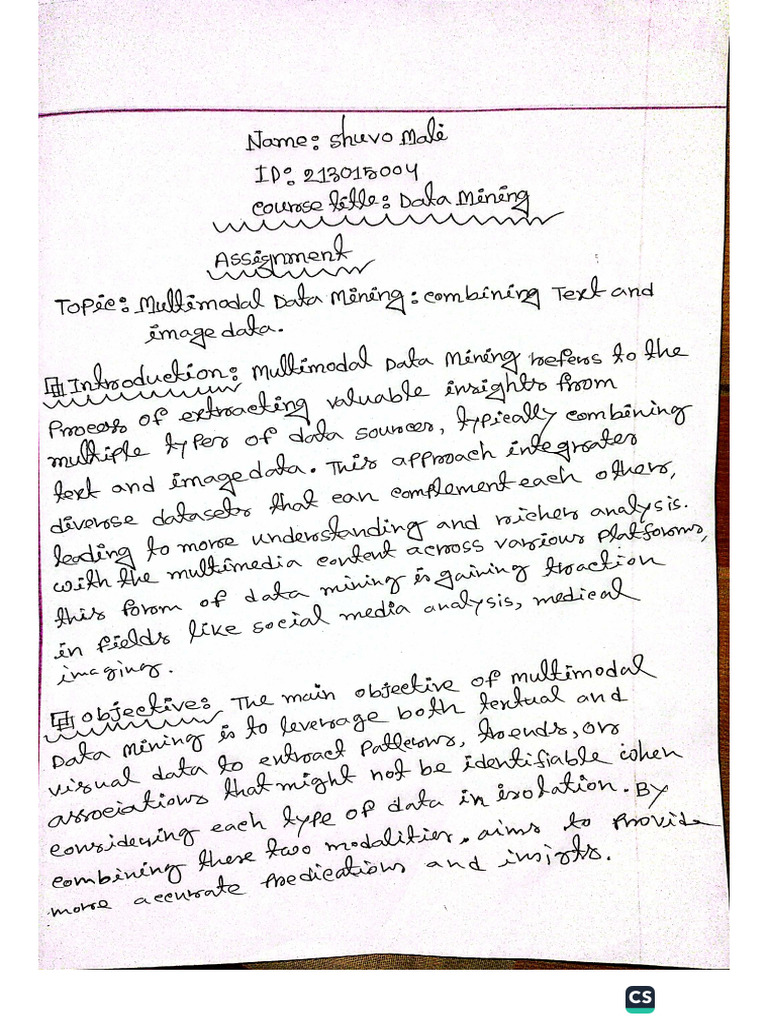 Name: Shuvo Mali
ID: 213015004
Course title: Data Mining
Assignment
Topic: Multimodal Data Mining: combining Text and
image data.
Introduction: Multimodal Data Mining refers to the
Process of extracting valuable insights from
multiple types of data sources, typically combining
text and image data. This approach integrates
diverse datasets that can complement each others,
leading to more understanding and richer analysis.
with the multimedia content across various platforms,
this form of data mining is gaining traction
in fields like social media analysis, medical
imaging.
Objective: The main objective of multimodal
Data Mining is to leverage both textual and
visual data to extract patterns, trends, or
associations that might not be identifiable when
considering each type of data in isolation. By
combining these two modalities, aims to provide
more accurate predications and insigts.
CS